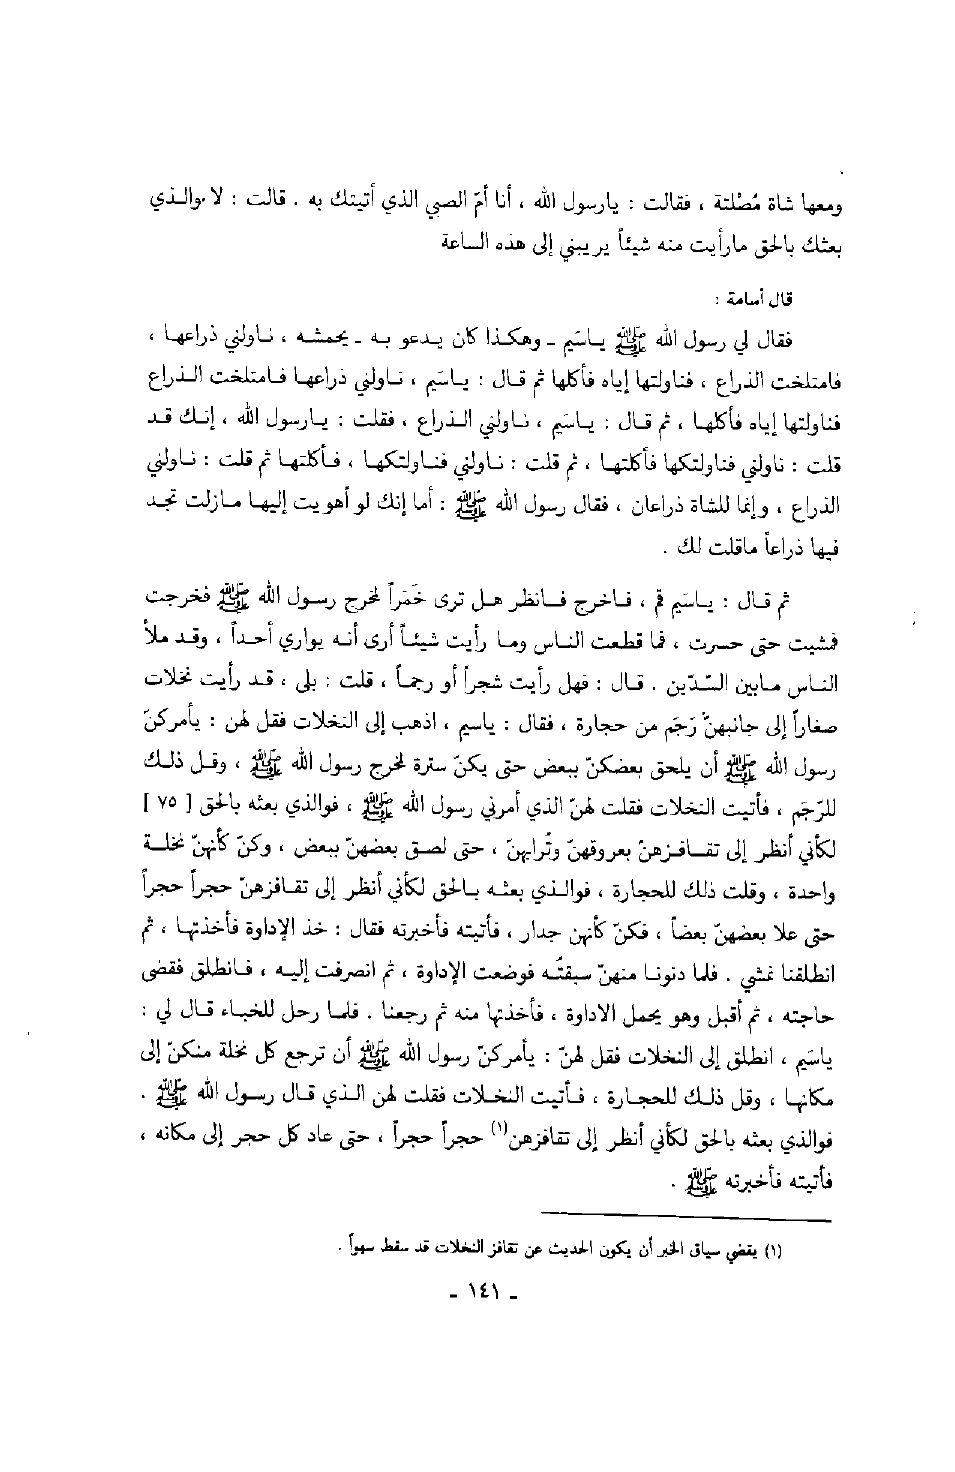 ومعها شاة مُصْلتة ، فقالت : يارسول الله ، أنا أمّ الصبي الذي أتيتك به . قالت : لا والـذي
بعثك بالحق مارأيت منه شيئاً يريبني إلى هذه الساعة
قال أسامة :
فقال لي رسول الله ﷺ يـاسَيم ـ وهكـذا كان يـدعو بـه ـ يخمشـه ، نـاولني ذراعهـا ،
فامتلخت الذراع ، فناولتها إياه فأكلها ثم قال : يـاسَيم ، نـاولني ذراعهـا فـامتلخت الـذراع
فناولتها إياه فأكلهـا ، ثم قـال : يـاسَيم ، نـاولني الـذراع ، فقلت : يـارسول الله ، إنـك قـد
قلت : ناولني فناولتكها فأكلتها ، ثم قلت : نـاولني فنـاولتكهـا ، فـأكلتهـا ثم قلت : نـاولني
الذراع ، وإنما للشاة ذراعان ، فقال رسول الله ﷺ : أما إنك لو أهويت إليهـا مـازلت تجـد
فيها ذراعاً ماقلت لك .
ثم قـال : يـاسَيم قم ، فـاخرج فـانظر هـل ترى خَمَراً لمخرج رسول الله ﷺ فخرجت
فمشيت حتى حسرت ، فما قطعت الناس ومـا رأيت شيئـاً أرى أنـه يواري أحـداً ، وقـد ملأ
النـاس مـابين السّدّين . قـال : فهل رأيت شجراً أو رجمـاً ، قلت : بلى ، قـد رأيت نخلات
صغاراً إلى جانبهنّ رَجَم من حجارة ، فقال : ياسيم ، اذهب إلى النخلات فقل لهن : يـأمركنّ
رسول الله ﷺ أن يلحق بعضكنّ ببعض حتى يكنّ سترة لمخرج رسول الله ﷺ ، وقـل ذلـك
للرّجَم ، فأتيت النخلات فقلت لهنّ الذي أمرني رسول الله ﷺ ، فوالذي بعثه بالحق [ ٧٥ ]
لكأني أنظر إلى تقـافـزهنّ بعروقهنّ وتُرابهنّ ، حتى لصق بعضهنّ ببعض ، وكنّ كأنهنّ نخلـة
واحدة ، وقلت ذلك للحجارة ، فوالـذي بعثـه بـالحق لكأني أنظر إلى تقـافزهنّ حجراً حجراً
حتى علا بعضهنّ بعضاً ، فكنّ كأنهن جدار ، فأتيته فأخبرته فقال : خذ الإداوة فأخذتهـا ، ثم
انطلقنا نمشي . فلما دنونـا منهنّ سبقتُـه فوضعت الإداوة ، ثم انصرفت إليـه ، فـانطلق فقضى
حاجته ، ثم أقبل وهو يحمل الاداوة ، فأخذتها منه ثم رجعنا . فلمـا رحل للخبـاء قـال لي :
ياسَيم ، انطلق إلى النخلات فقل لهنّ : يأمركنّ رسول الله ﷺ أن ترجع كل نخلة منكنّ إلى
مكانهـا ، وقل ذلـك للحجـارة ، فـأتيت النخـلات فقلت لهن الـذي قـال رسول الله ﷺ .
فوالذي بعثه بالحق لكأني أنظر إلى تقافزهن(١) حجراً حجراً ، حتى عاد كل حجر إلى مكانه ،
فأتيته فأخبرته ﷺ .
(١) يقضي سياق الخبر أن يكون الحديث عن تقافز النخلات قد سقط سهواً .
ـ ١٤١ ـ